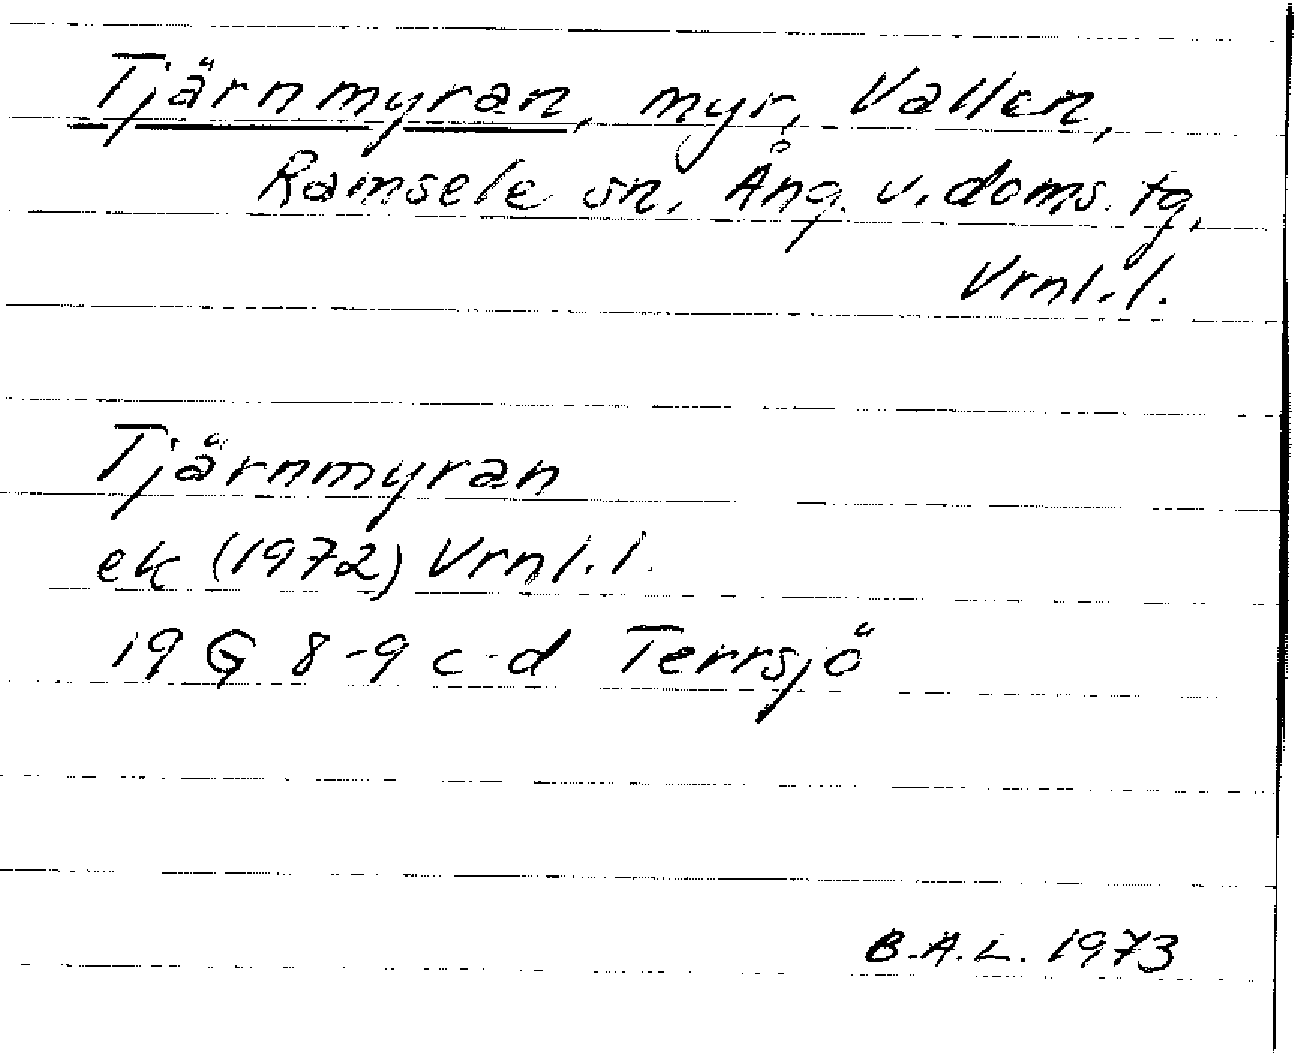 Tjärnmyran, myr, Vallen,
Ramsele sn, Ång. v. doms. tg,
Vrnl. l.
Tjärnmyran
ek (1972) Vrnl. l.
19 G 8-9 c-d Terrsjö
B.A.L. 1973